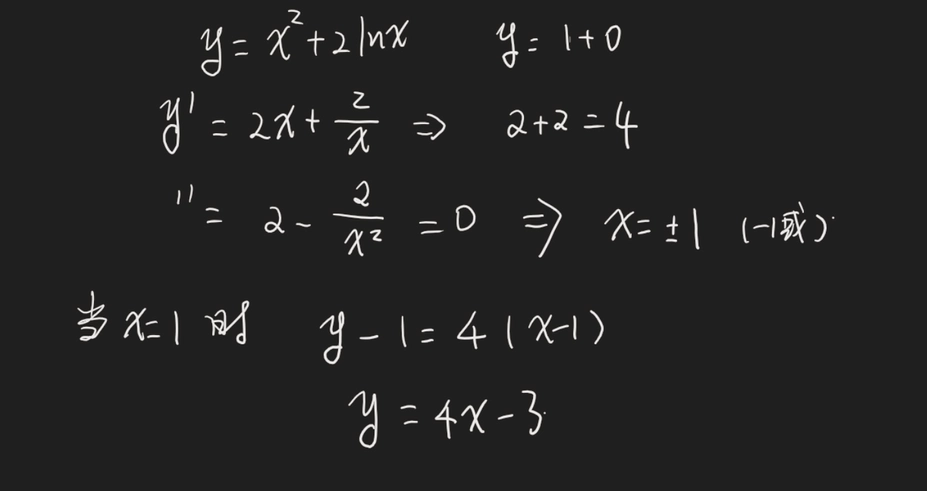 y = x² + 2 ln x y = 1 + 0
y' = 2x + 2/x ⇒ 2 + 2 = 4
'' = 2 - 2/x² = 0 ⇒ x = ±1 (-1
当 x = 1 时 y - 1 = 4(x-1)
y = 4x - 3